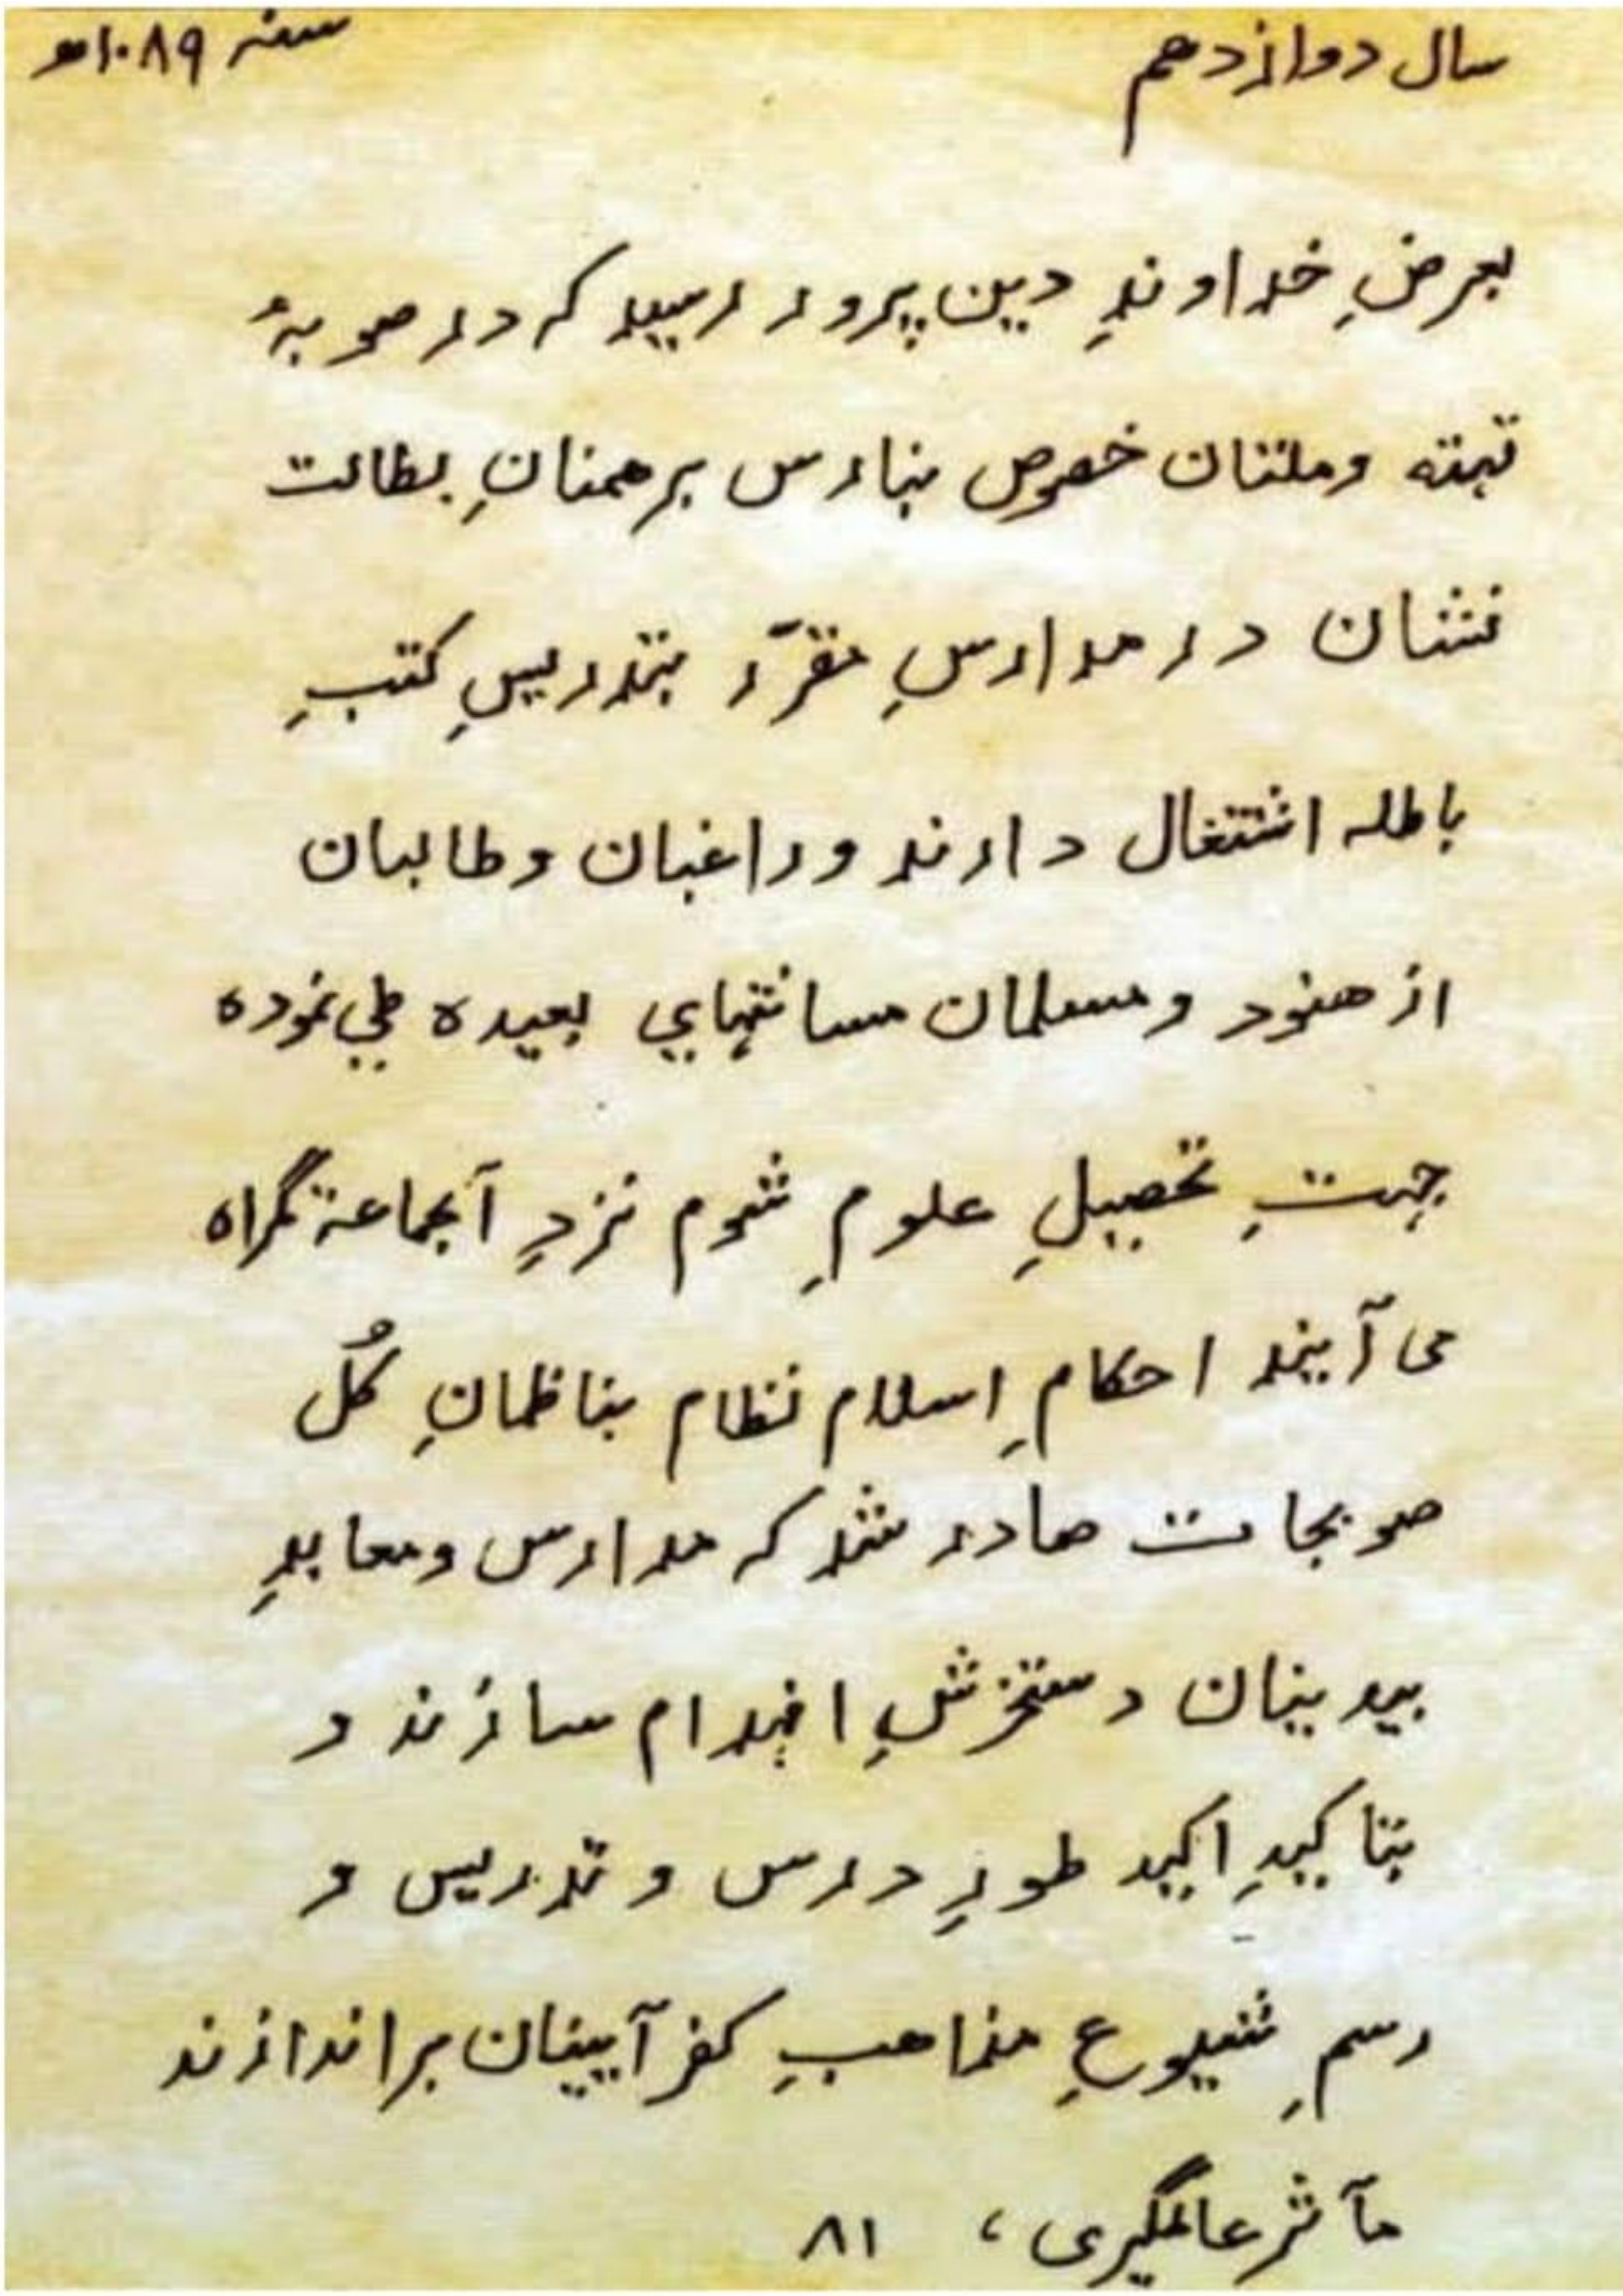 سال دوازدهم سنہ ۱۰۸۹ھ
بعرضِ خداوندِ دین پرور رسید کہ در صوبۂ
تہتہ وملتان خصوص بنارس برهمنانِ بطالت
نشان در مدارسِ مقرّر بتدریسِ کتبِ
باطلہ اشتغال دارند وراغبان وطالبان
از هنود ومسلمان مسافتہاي بعیدہ طي نمودہ
جہتِ تحصیلِ علومِ شوم نزدِ آنجماعۃ گمراہ
می آیند احکامِ اسلام نظام بناظمانِ کُل
صوبجات صادر شد کہ مدارس ومعابدِ
بیدینان دستخرشِ انہدام سازند و
بتاکیدِ اکید طورِ درس و تدریس و
رسمِ شیوعِ مذاهبِ کفر آیینان براندازند
مآثر عالمگیری، ۸۱